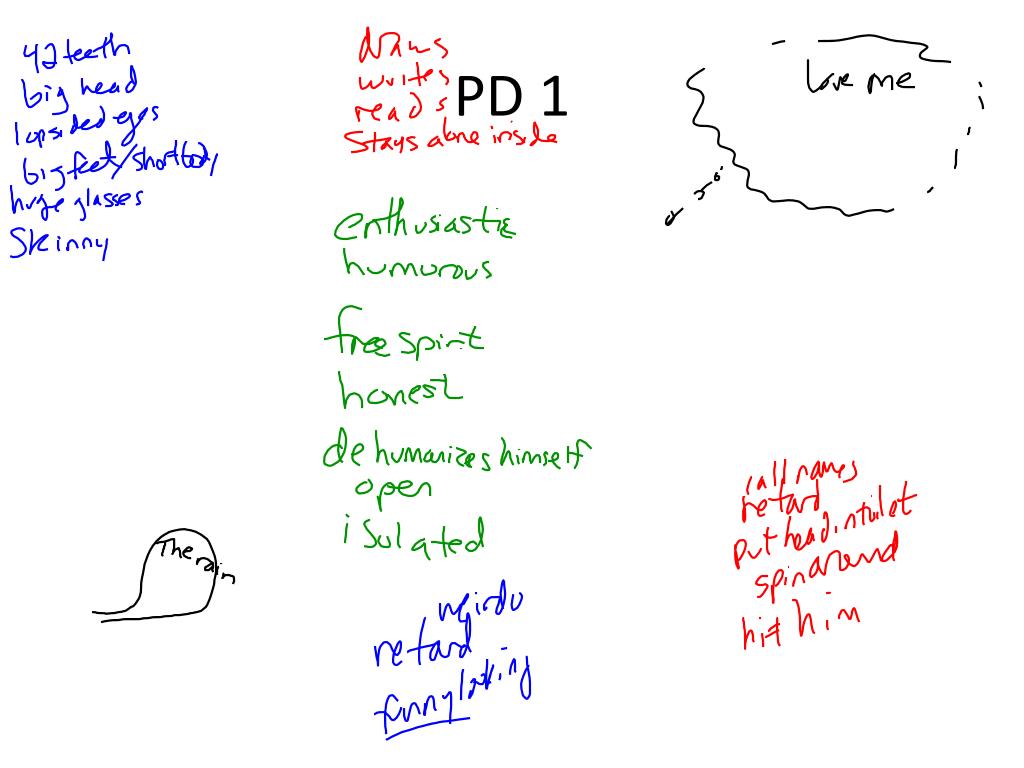 42 teeth
big head
lopsided eyes
big feet/short body
huge glasses
Skinny
draws
writes
reads
Stays alone inside
PD 1
love me
enthusiastic
humurous
free spirit
honest
dehumanizes himself
open
isolated
The rain
weirdo
retard
funny looking
call names
retard
put head in toilet
spin around
hit him